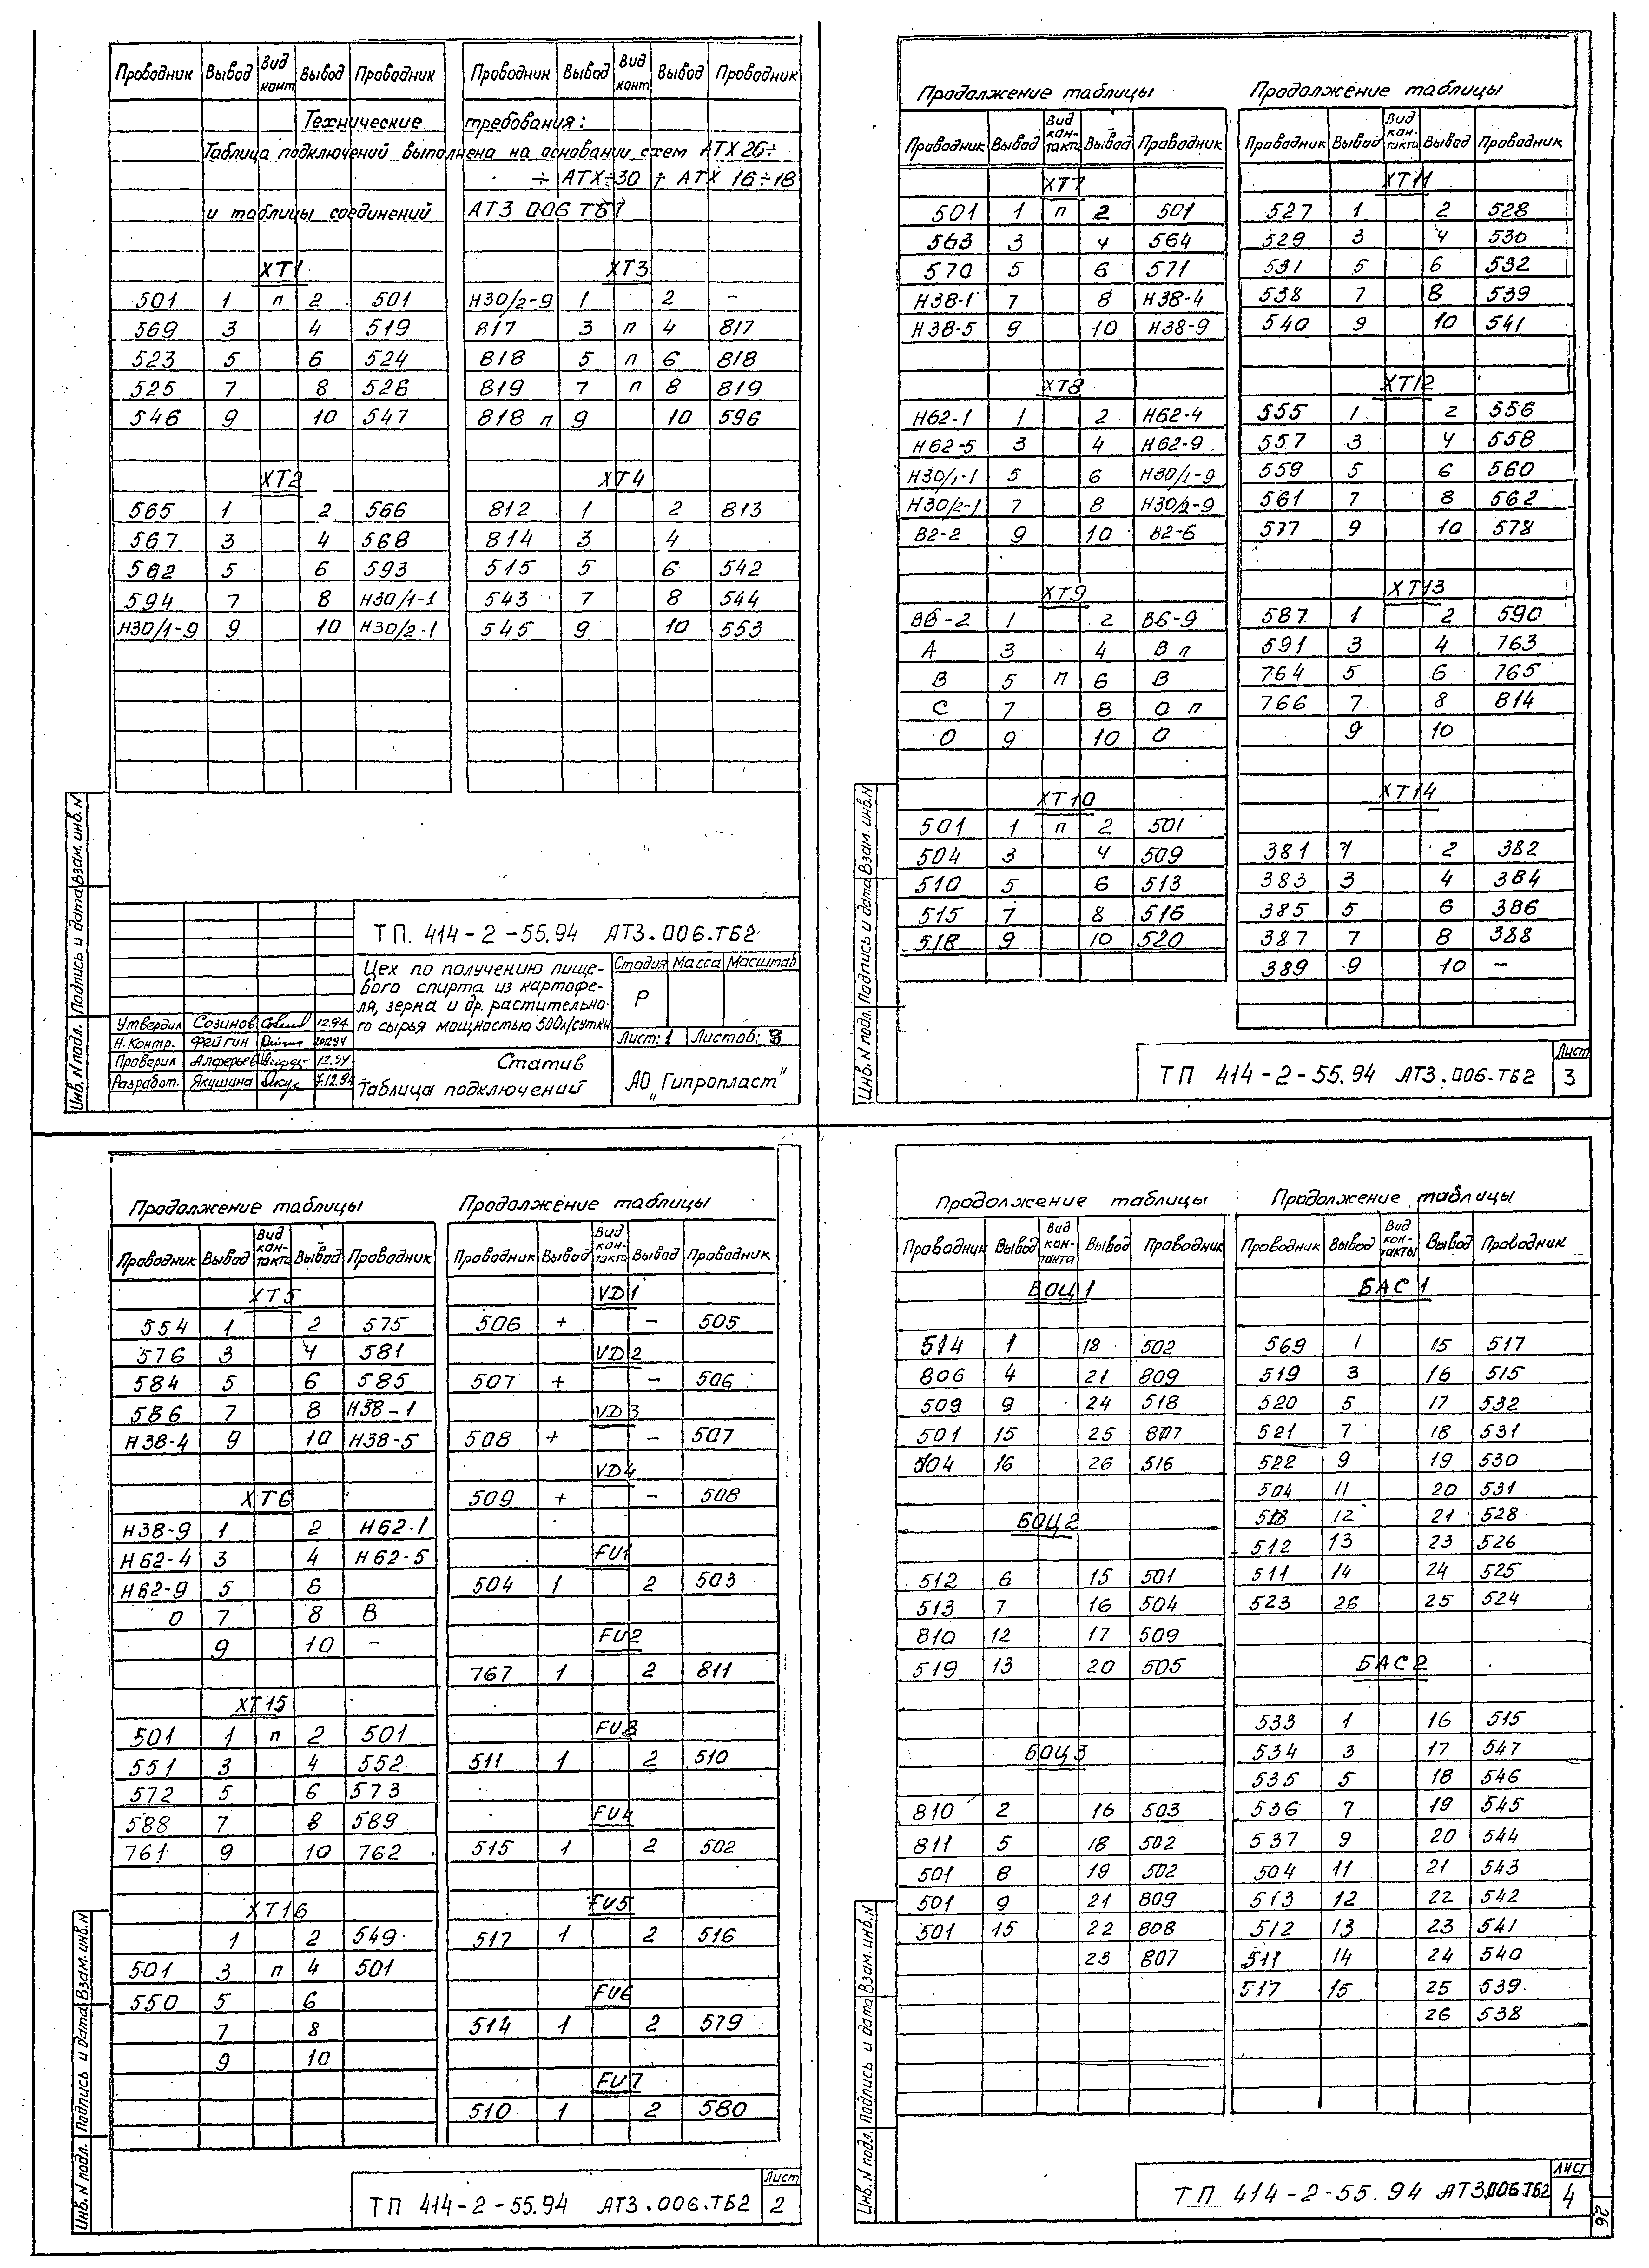 Проводник Вывод Вид конт Вывод Проводник Проводник Вывод Вид конт Вывод Проводник
Технические требования:
Таблица подключений выполнена на основании схем АТХ 26÷
÷ АТХ÷30 ÷ АТХ 16÷18
и таблицы соединений АТ3 006 ТБ1
ХТ1
501 1 п 2 501
569 3 4 519
523 5 6 524
525 7 8 526
546 9 10 547
ХТ2
565 1 2 566
567 3 4 568
592 5 6 593
594 7 8 Н30/1-1
Н30/1-9 9 10 Н30/2-1
ХТ3
Н30/2-9 1 2 -
817 3 п 4 817
818 5 п 6 818
819 7 п 8 819
818 п 9 10 596
ХТ4
812 1 2 813
814 3 4
515 5 6 542
543 7 8 544
545 9 10 553
ТП. 414-2-55.94 АТ3.006.ТБ2
Цех по получению пище-
вого спирта из картофе-
ля, зерна и др. растительно-
го сырья мощностью 500л/сутки
Стадия Масса Масштаб
Р
Лист: 1 Листов: 8
Утвердил Созинов 12.94
Н. Контр. Фейгин
Проверил Алферьев 12.94
Разработ. Якушина 7.12.94
Статив
Таблица подключений
АО „Гипропласт"
Инв. N подл. Подпись и дата Взам. инв. N
Продолжение таблицы Продолжение таблицы
Проводник Вывод Вид кон-такта Вывод Проводник Проводник Вывод Вид кон-такта Вывод Проводник
ХТ7
501 1 п 2 501
563 3 4 564
570 5 6 571
Н38-1 7 8 Н38-4
Н38-5 9 10 Н38-9
ХТ8
Н62-1 1 2 Н62-4
Н62-5 3 4 Н62-9
Н30/1-1 5 6 Н30/1-9
Н30/2-1 7 8 Н30/2-9
В2-2 9 10 В2-6
ХТ9
В6-2 1 2 В6-9
А 3 4 В п
В 5 п 6 В
С 7 8 О п
О 9 10 О
ХТ10
501 1 п 2 501
504 3 4 509
510 5 6 513
515 7 8 516
518 9 10 520
ХТ11
527 1 2 528
529 3 4 530
531 5 6 532
538 7 8 539
540 9 10 541
ХТ12
555 1 2 556
557 3 4 558
559 5 6 560
561 7 8 562
577 9 10 578
ХТ13
587 1 2 590
591 3 4 763
764 5 6 765
766 7 8 814
9 10
ХТ14
381 1 2 382
383 3 4 384
385 5 6 386
387 7 8 388
389 9 10 -
Инв. N подл. Подпись и дата Взам. инв. N
ТП 414-2-55.94 АТ3.006.ТБ2
Лист
3
Продолжение таблицы Продолжение таблицы
Проводник Вывод Вид кон-такта Вывод Проводник Проводник Вывод Вид кон-такта Вывод Проводник
ХТ5
554 1 2 575
576 3 4 581
584 5 6 585
586 7 8 Н38-1
Н38-4 9 10 Н38-5
ХТ6
Н38-9 1 2 Н62-1
Н62-4 3 4 Н62-5
Н62-9 5 6
О 7 8 В
9 10 -
ХТ15
501 1 п 2 501
551 3 4 552
572 5 6 573
588 7 8 589
761 9 10 762
ХТ16
1 2 549
501 3 п 4 501
550 5 6
7 8
9 10
VD1
506 + - 505
VD2
507 + - 506
VD3
508 + - 507
VD4
509 + - 508
FU1
504 1 2 503
FU2
767 1 2 811
FU3
511 1 2 510
FU4
515 1 2 502
FU5
517 1 2 516
FU6
514 1 2 579
FU7
510 1 2 580
Инв. N подл. Подпись и дата Взам. инв. N
ТП 414-2-55.94 АТ3.006.ТБ2
Лист
2
Продолжение таблицы Продолжение таблицы
Проводник Вывод Вид кон-такта Вывод Проводник Проводник Вывод Вид кон-такты Вывод Проводник
БОЦ1
514 1 18 502
806 4 21 809
509 9 24 518
501 15 25 807
504 16 26 516
БОЦ2
512 6 15 501
513 7 16 504
810 12 17 509
519 13 20 505
БОЦ3
810 2 16 503
811 5 18 502
501 8 19 502
501 9 21 809
501 15 22 808
23 807
БАС1
569 1 15 517
519 3 16 515
520 5 17 532
521 7 18 531
522 9 19 530
504 11 20 531
513 12 21 528
512 13 23 526
511 14 24 525
523 26 25 524
БАС2
533 1 16 515
534 3 17 547
535 5 18 546
536 7 19 545
537 9 20 544
504 11 21 543
513 12 22 542
512 13 23 541
511 14 24 540
517 15 25 539
26 538
Инв. N подл. Подпись и дата Взам. инв. N
ТП 414-2-55.94 АТ3.006.ТБ2
Лист
4
26